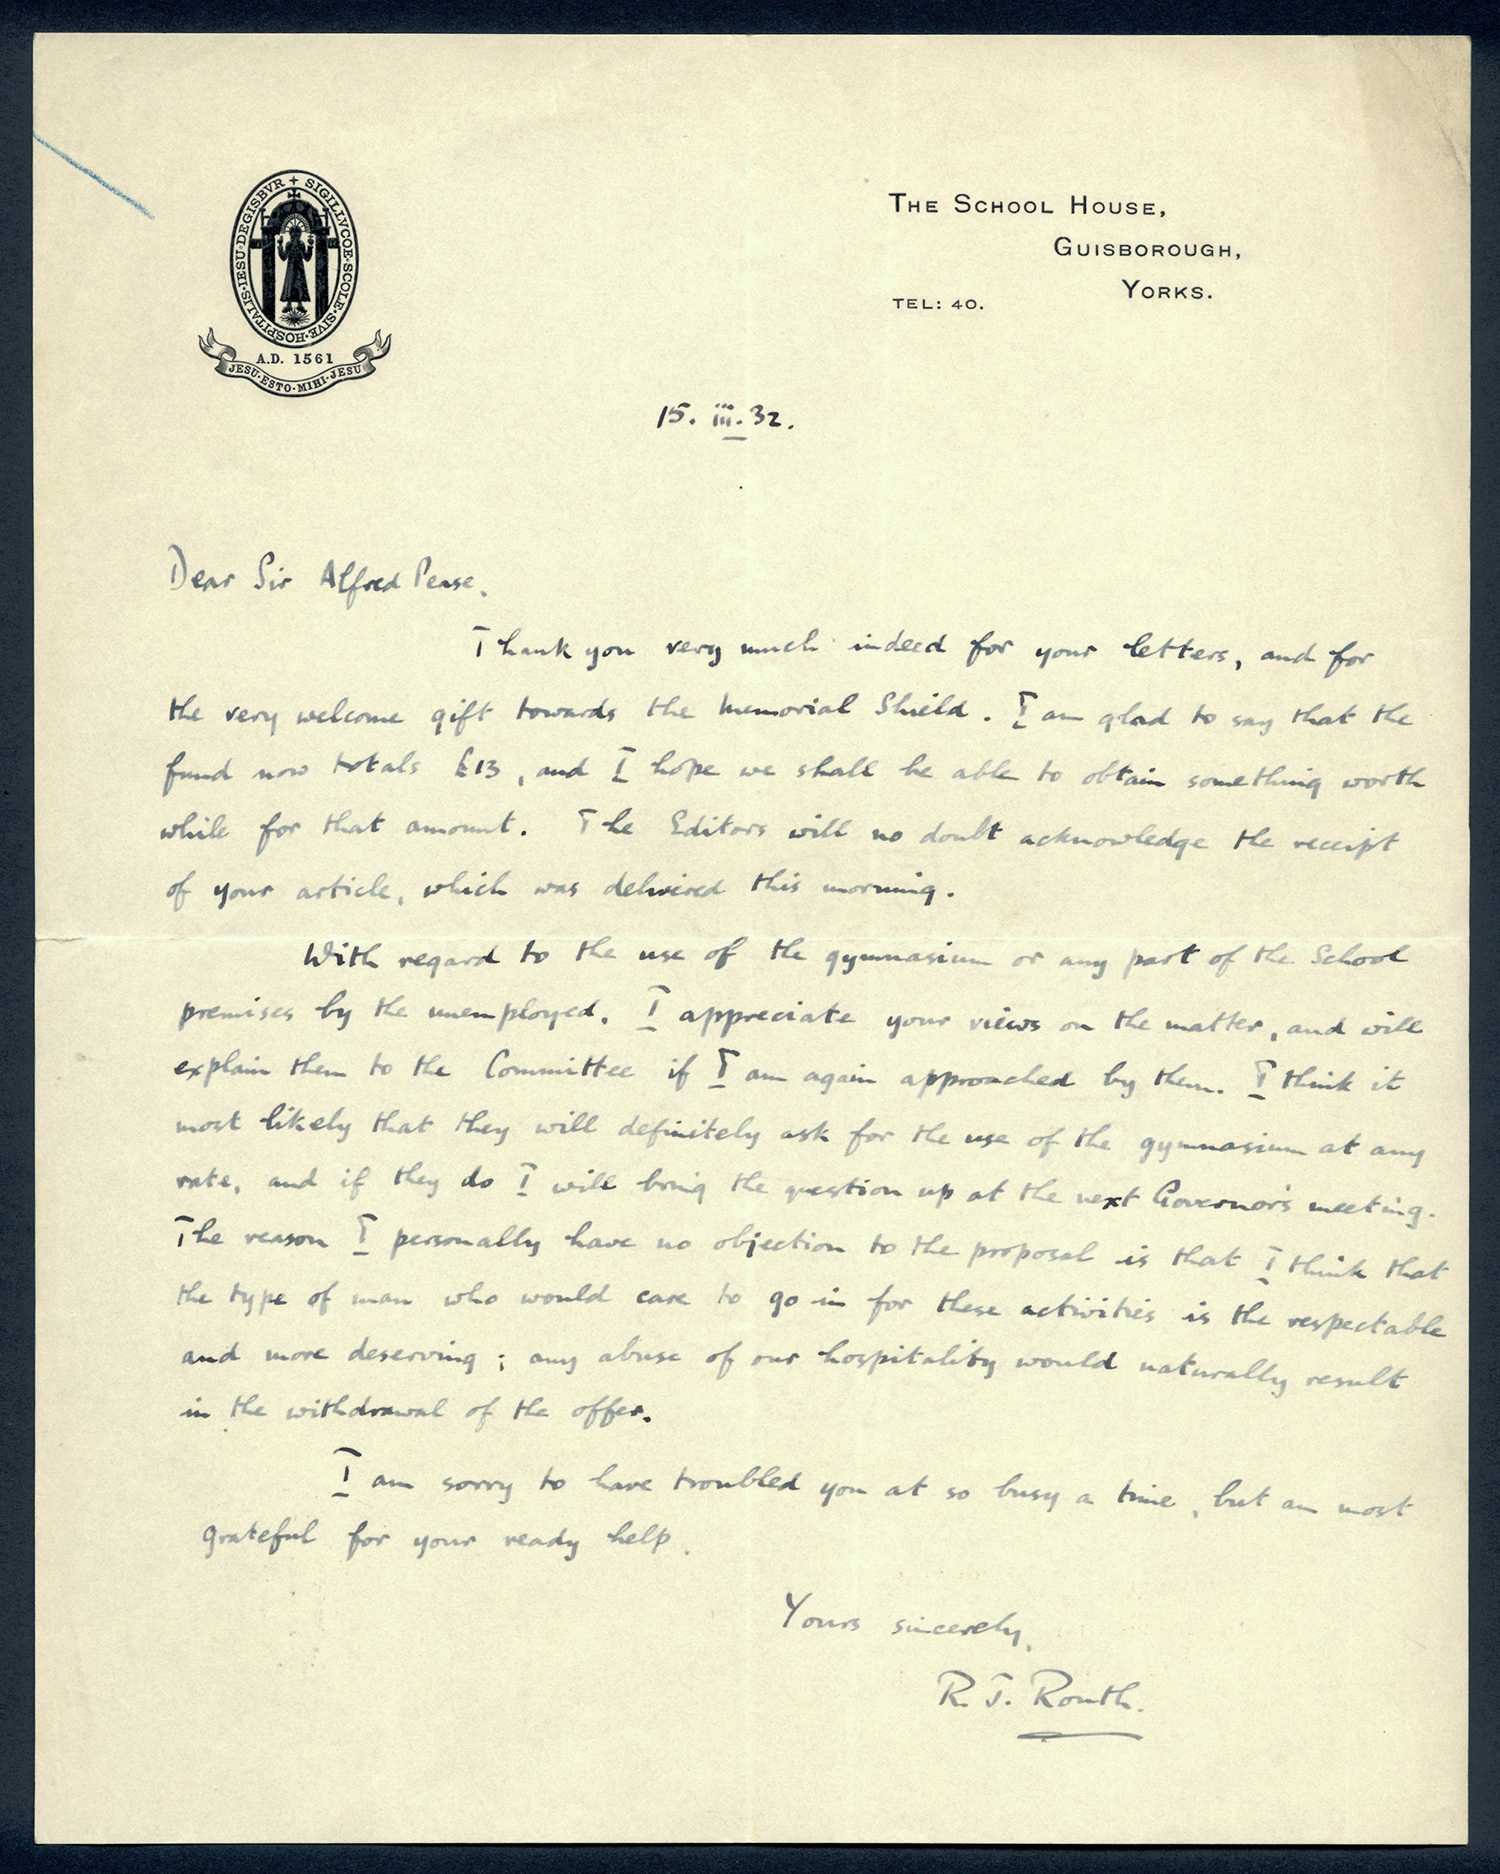 SIGILLVCOE·SCOLE·SIVE·HOSPITALIS·IESU·DEGISBVR
A.D. 1561
JESU·ESTO·MIHI·JESU
THE SCHOOL HOUSE,
GUISBOROUGH,
YORKS.
TEL: 40.
15. iii. 32.
Dear Sir Alfred Pease,
Thank you very much indeed for your letters, and for
the very welcome gift towards the Memorial Shield. I am glad to say that the
fund now totals £13, and I hope we shall be able to obtain something worth
while for that amount. The Editors will no doubt acknowledge the receipt
of your article, which was delivered this morning.
With regard to the use of the gymnasium or any part of the School
premises by the unemployed, I appreciate your views on the matter, and will
explain them to the Committee if I am again approached by them. I think it
most likely that they will definitely ask for the use of the gymnasium at any
rate, and if they do I will bring the question up at the next Governor's meeting.
The reason I personally have no objection to the proposal is that I think that
the type of man who would care to go in for these activities is the respectable
and more deserving; any abuse of our hospitality would naturally result
in the withdrawal of the offer.
I am sorry to have troubled you at so busy a time, but am most
grateful for your ready help.
Yours sincerely,
R. J. Routh.